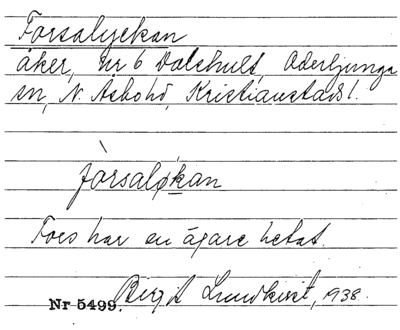 Forsalyckan
åker, Nr 6 Dalshult, Oderljunga
sn, N. Åsbohd, Kristianstads l.
fòrsaløkan
Fors har en ägare hetat.
Birgit Lundkvist, 1938.
Nr 5499.